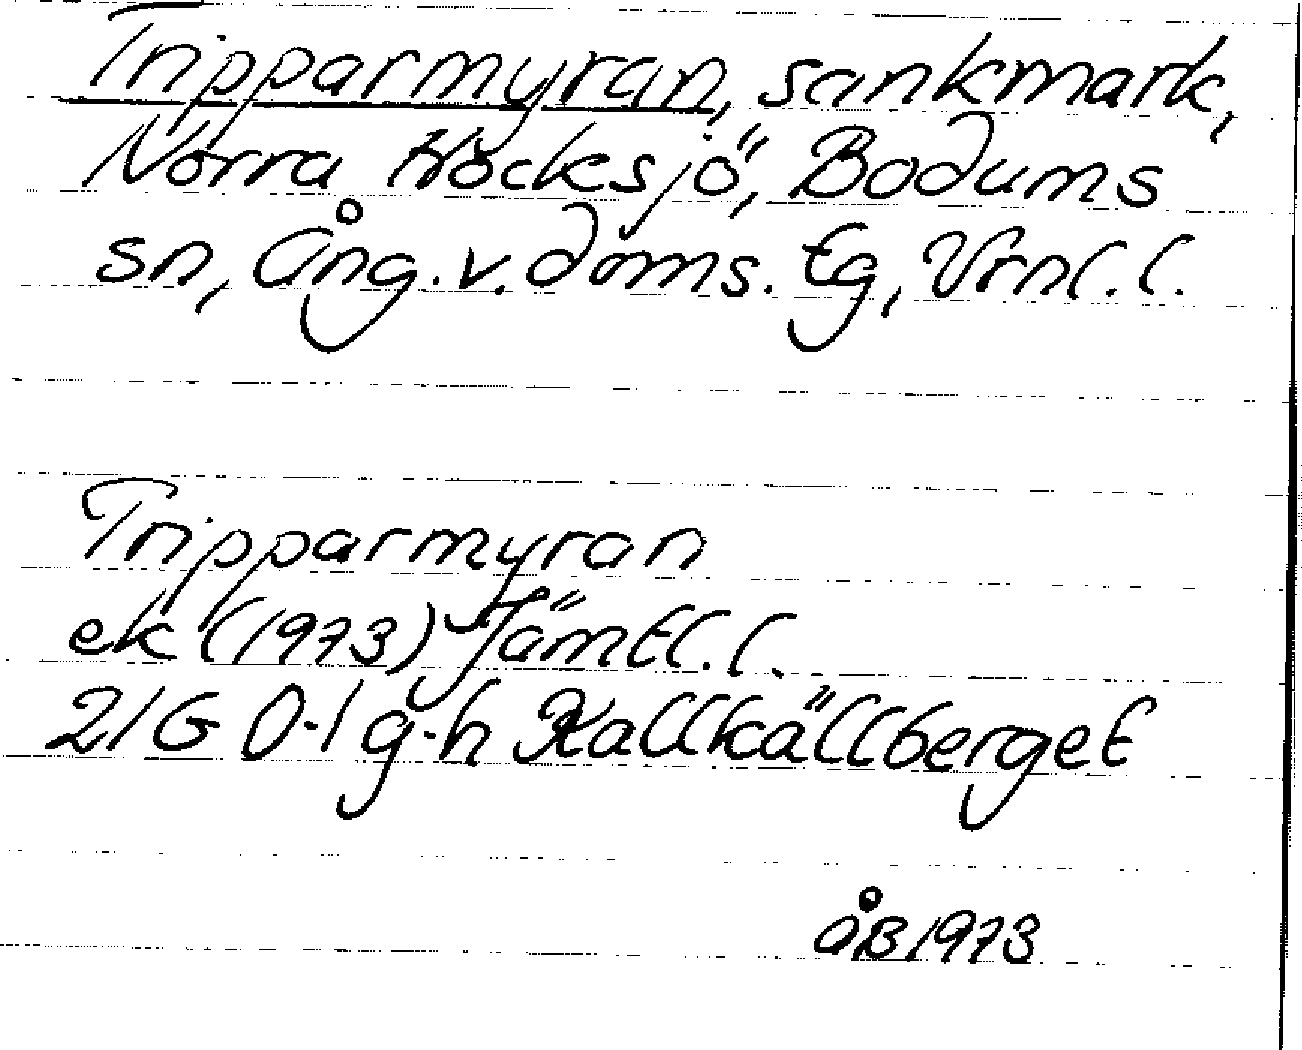 Tripparmyran, sankmark,
Norra Höcksjö, Bodums
sn, Ång. v. doms. tg, Vrnl. l.
Tripparmyran
ek (1973) Jämtl. l.
21G 0-1 g-h Kallkällberget
ÅB 1973